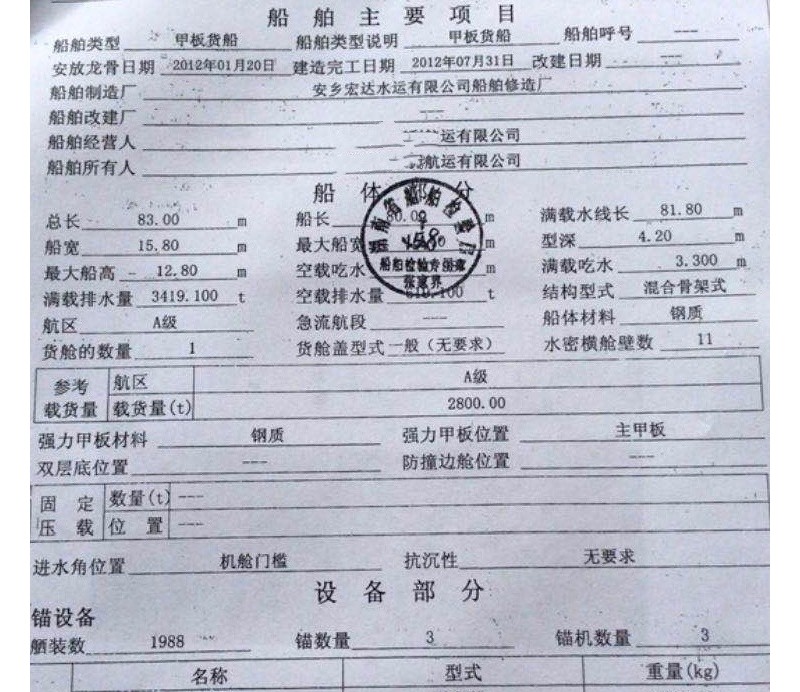 船舶主要项目
船舶类型 甲板货船 船舶类型说明 甲板货船 船舶呼号 ---
安放龙骨日期 2012年01月20日 建造完工日期 2012年07月31日 改建日期 ---
船舶制造厂 安乡宏达水运有限公司船舶修造厂
船舶改建厂 ---
船舶经营人 运有限公司
船舶所有人 航运有限公司
船体部分
总长 83.00 m 船长 80.00 m 满载水线长 81.80 m
船宽 15.80 m 最大船宽 m 型深 4.20 m
最大船高 12.80 m 空载吃水 m 满载吃水 3.300 m
满载排水量 3419.100 t 空载排水量 t 结构型式 混合骨架式
航区 A级 急流航段 --- 船体材料 钢质
货舱的数量 1 货舱盖型式 一般（无要求） 水密横舱壁数 11
湖南省船舶检验局
船舶检验专用章
张家界
参考载货量 航区 A级
载货量(t) 2800.00
强力甲板材料 钢质 强力甲板位置 主甲板
双层底位置 --- 防撞边舱位置 ---
固定压载 数量(t) ---
位置 ---
进水角位置 机舱门槛 抗沉性 无要求
设备部分
锚设备
舾装数 1988 锚数量 3 锚机数量 3
名称 型式 重量(kg)